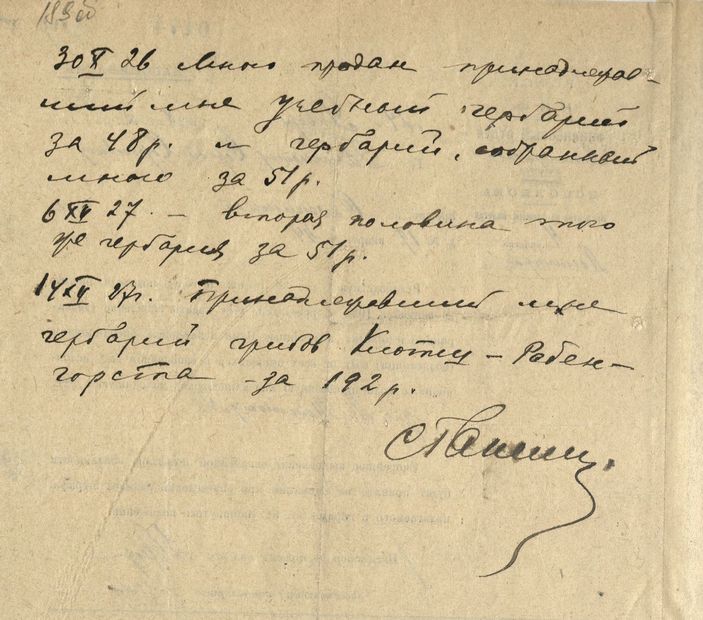 193об
30 X 26 Мною продан принадлежав-
ший мне учебный гербарий
за 48р. и гербарий, собранный
мною за 51р.
6 XII 27. – вторая половина того
же гербария за 51р.
14 XII 27г. Принадлежавший мне
гербарий грибов Клотш – Рабен-
горста – за 192р.